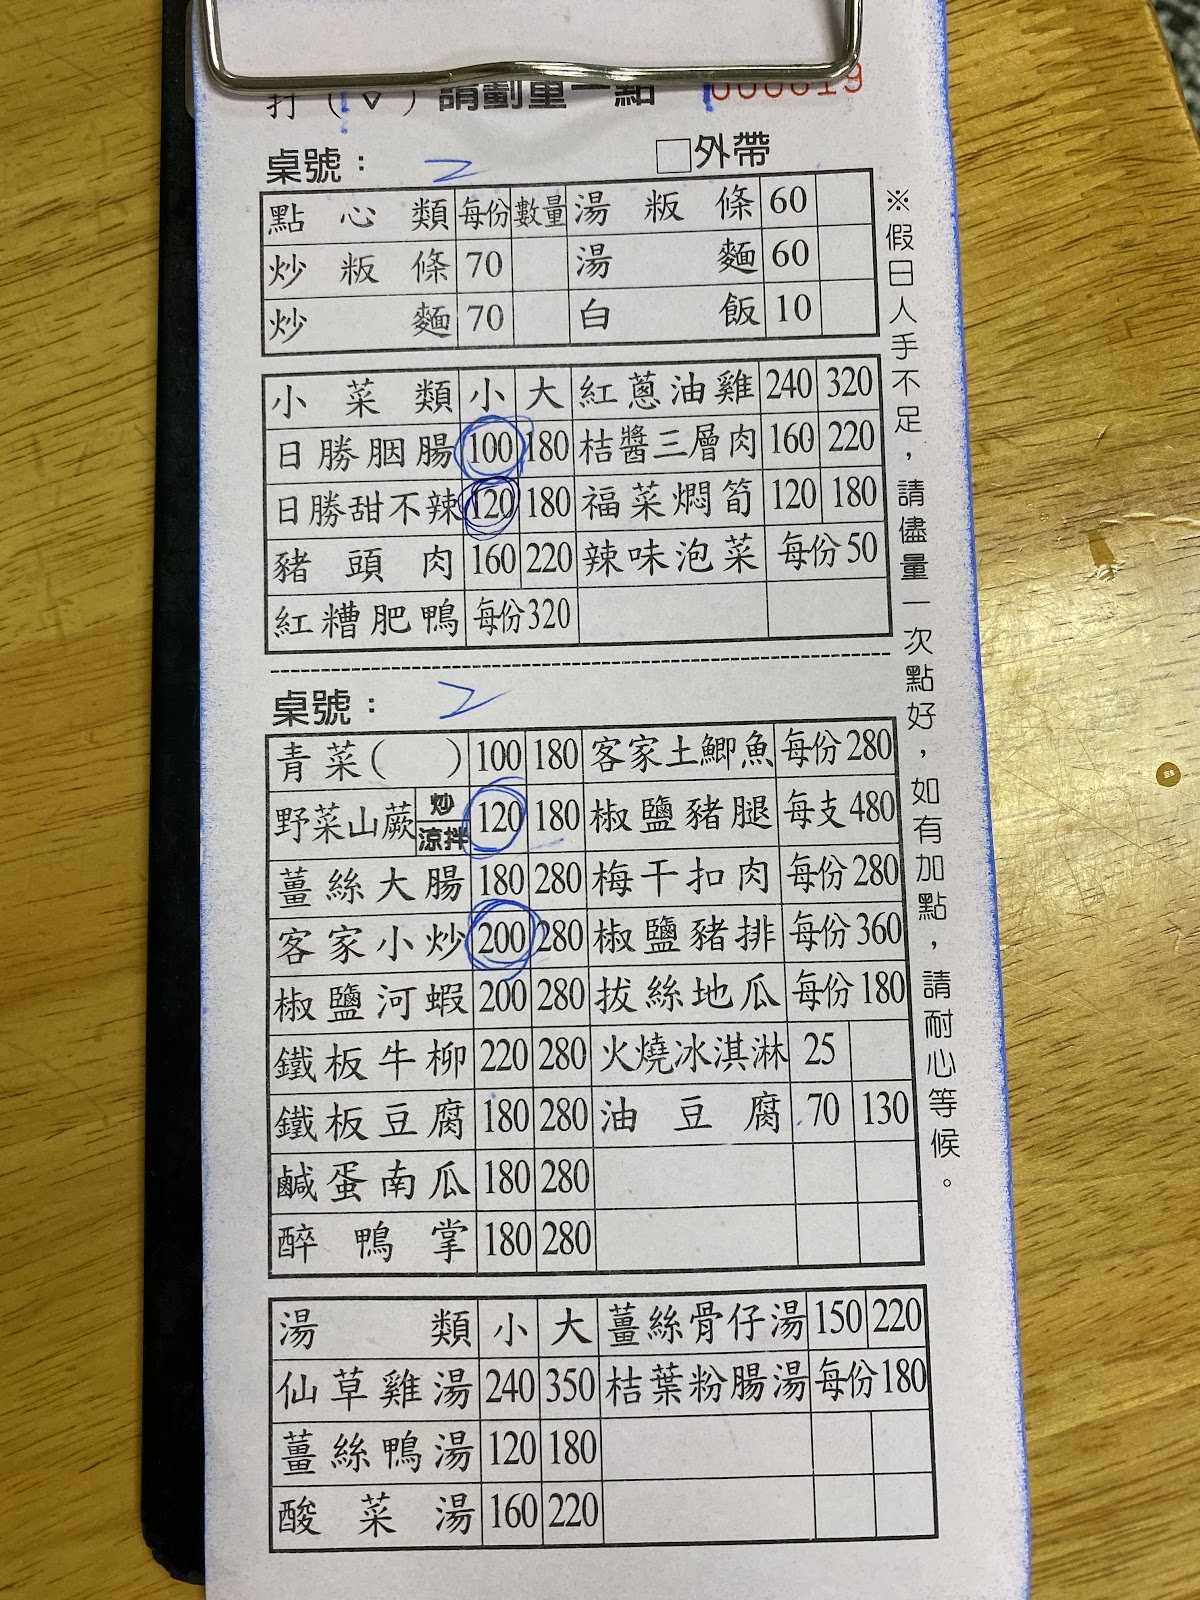 打（∨）請劃重一點 000019
桌號： 2 □外帶
點心類 每份 數量 湯粄條 60
炒粄條 70 湯麵 60
炒麵 70 白飯 10
小菜類 小 大 紅蔥油雞 240 320
日勝胭腸 100 180 桔醬三層肉 160 220
日勝甜不辣 120 180 福菜燜筍 120 180
豬頭肉 160 220 辣味泡菜 每份50
紅糟肥鴨 每份320
桌號： 2
青菜（ ） 100 180 客家土鯽魚 每份280
野菜山蕨 炒 涼拌 120 180 椒鹽豬腿 每支480
薑絲大腸 180 280 梅干扣肉 每份280
客家小炒 200 280 椒鹽豬排 每份360
椒鹽河蝦 200 280 拔絲地瓜 每份180
鐵板牛柳 220 280 火燒冰淇淋 25
鐵板豆腐 180 280 油豆腐 70 130
鹹蛋南瓜 180 280
醉鴨掌 180 280
湯類 小 大 薑絲骨仔湯 150 220
仙草雞湯 240 350 桔葉粉腸湯 每份180
薑絲鴨湯 120 180
酸菜湯 160 220
※假日人手不足，請儘量一次點好，如有加點，請耐心等候。